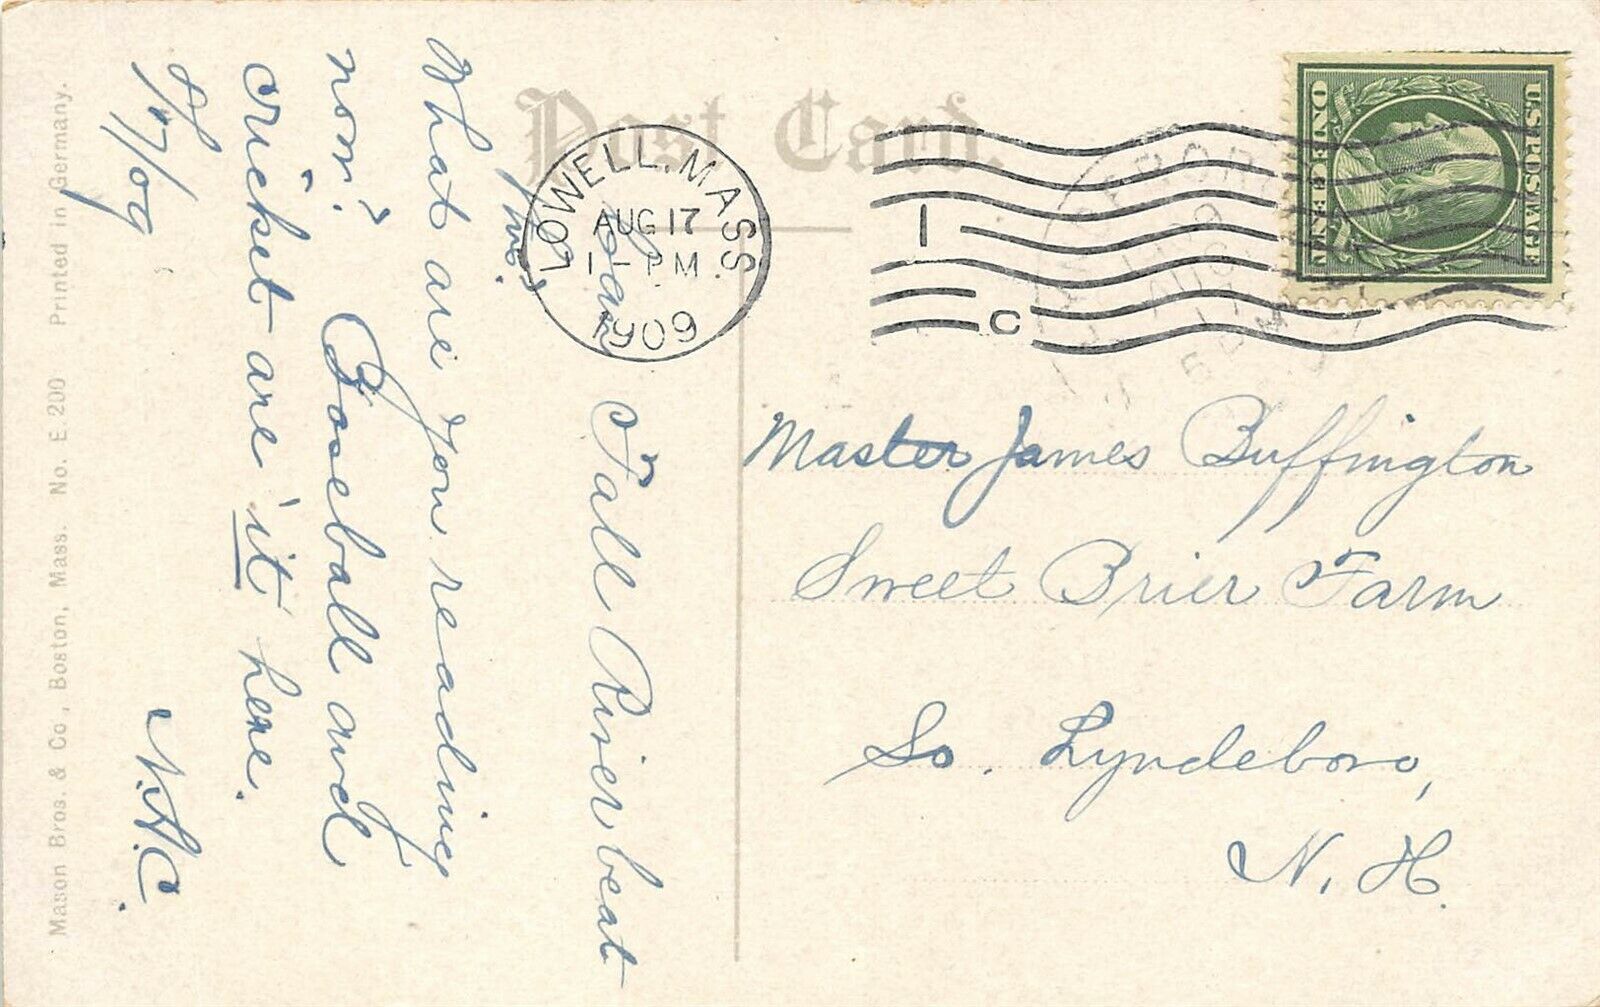 Post Card.
LOWELL, MASS.
AUG 17
1 - PM
1909
1
C
U.S. POSTAGE
ONE CENT
Master James Buffington
Sweet Brier Farm
So. Lyndeboro,
N. H.
Fall River beat
What are you reading
now? Baseball and
cricket are 'it' here.
8/17/09
N.H.C.
Mason Bros. & Co., Boston, Mass. No. E 200 Printed in Germany.